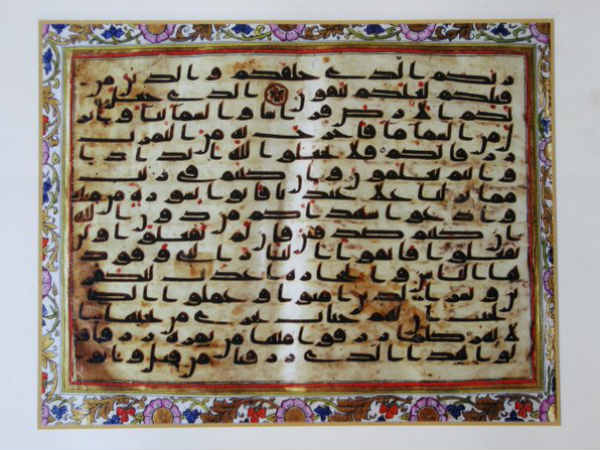 ربكم الذي خلقكم والذين من
قبلكم لعلكم تتقون الذي جعل
لكم الارض فرشا والسما بنا وانز
ل من السما ما فاخرج به من الثمرت
رزقا لكم فلا تجعلوا لله اندادا
وانتم تعلمون وان كنتم في ريب
مما نزلنا على عبدنا فاتوا بسورة من مثله
وادعوا شهداكم من دون الله
ان كنتم صدقين فان لم تفعلوا ولن
تفعلوا فاتقوا النار التي وقود
ها الناس والحجارة اعدت للكفر
ين وبشر الذين امنوا وعملوا الصـ
ـلحت ان لهم جنات تجري من تحتها ا
لانهر كلما رزقوا منها من ثمرة رزقا قا
لوا هذا الذي رزقنا من قبل واتوا